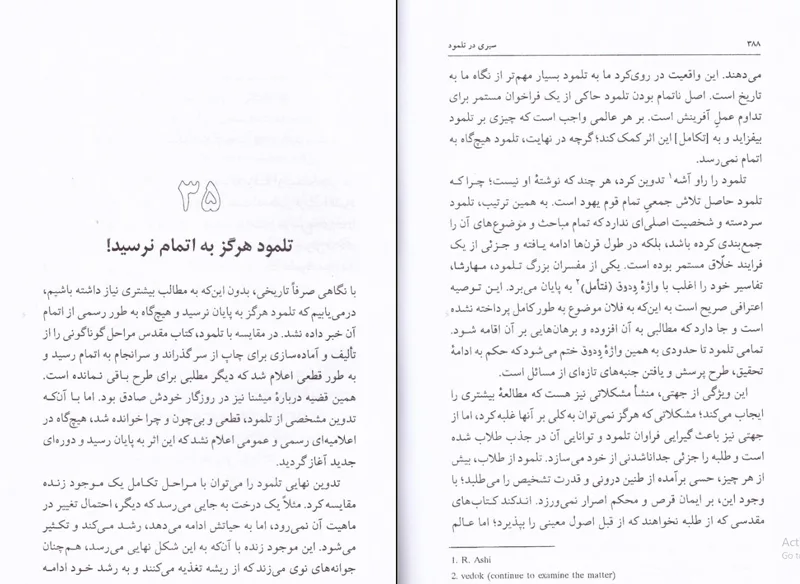 ۳۵
تلمود هرگز به اتمام نرسید!
با نگاهی صرفاً تاریخی، بدون این‌که به مطالب بیشتری نیاز داشته باشیم،
درمی‌یابیم که تلمود هرگز به پایان نرسید و هیچ‌گاه به طور رسمی از اتمام
آن خبر داده نشد. در مقایسه با تلمود، کتاب مقدس مراحل گوناگونی را از
تألیف و آماده‌سازی برای چاپ از سر گذراند و سرانجام به اتمام رسید و
به طور قطعی اعلام شد که دیگر مطلبی برای طرح باقی نمانده است.
همین قضیه دربارهٔ میشنا نیز در روزگار خودش صادق بود. اما با آن‌که
تدوین مشخصی از تلمود، قطعی و بی‌چون و چرا خوانده شد، هیچ‌گاه در
اعلامیه‌ای رسمی و عمومی اعلام نشد که این اثر به پایان رسید و دوره‌ای
جدید آغاز گردید.
تدوین نهایی تلمود را می‌توان با مراحل تکامل یک موجود زنده
مقایسه کرد. مثلاً یک درخت به جایی می‌رسد که دیگر، احتمال تغییر در
ماهیت آن نمی‌رود، اما به حیاتش ادامه می‌دهد، رشد می‌کند و تکثیر
می‌شود. این موجود زنده با آن‌که به این شکل نهایی می‌رسد، هم‌چنان
جوانه‌های نوی می‌زند که از ریشه تغذیه می‌کنند و به رشد خود ادامه
۳۸۸ سیری در تلمود
می‌دهند. این واقعیت در روی‌کرد ما به تلمود بسیار مهم‌تر از نگاه ما به
تاریخ است. اصل ناتمام بودن تلمود حاکی از یک فراخوان مستمر برای
تداوم عملِ آفرینش است. بر هر عالمی واجب است که چیزی بر تلمود
بیفزاید و به [تکامل] این اثر کمک کند؛ گرچه در نهایت، تلمود هیچ‌گاه به
اتمام نمی‌رسد.
تلمود را راو آشه۱ تدوین کرد، هر چند که نوشتهٔ او نیست؛ چرا که
تلمود حاصل تلاش جمعیِ تمام قوم یهود است. به همین ترتیب، تلمود
سردسته و شخصیت اصلی‌ای ندارد که تمام مباحث و موضوع‌های آن را
جمع‌بندی کرده باشد، بلکه در طول قرن‌ها ادامه یافته و جزئی از یک
فرایند خلّاق مستمر بوده است. یکی از مفسران بزرگ تلمود، مهارشا،
تفاسیر خود را اغلب با واژهٔ وِدوق (فتأمل)۲ به پایان می‌برد. این توصیه
اعترافی صریح است به این‌که به فلان موضوع به طور کامل پرداخته نشده
است و جا دارد که مطالبی به آن افزوده و برهان‌هایی بر آن اقامه شود.
تمامی تلمود تا حدودی به همین واژهٔ وِدوق ختم می‌شود که حکم به ادامهٔ
تحقیق، طرح پرسش و یافتن جنبه‌های تازه‌ای از مسائل است.
این ویژگی از جهتی، منشأ مشکلاتی نیز هست که مطالعهٔ بیشتری را
ایجاب می‌کند؛ مشکلاتی که هرگز نمی‌توان به‌کلی بر آنها غلبه کرد، اما از
جهتی نیز باعث گیرایی فراوان تلمود و توانایی آن در جذب طلاب شده
است و طلبه را جزئی جداناشدنی از خود می‌سازد. تلمود از طلاب، بیش
از هر چیز، حسی برآمده از طنین درونی و قدرت تشخیص را می‌طلبد؛ با
وجود این، بر ایمان قرص و محکم اصرار نمی‌ورزد. اندکند کتاب‌های
مقدسی که از طلبه نخواهند که از قبل اصول معینی را بپذیرد؛ اما عالم
1. R. Ashi
2. vedok (continue to examine the matter)
Act
Go to